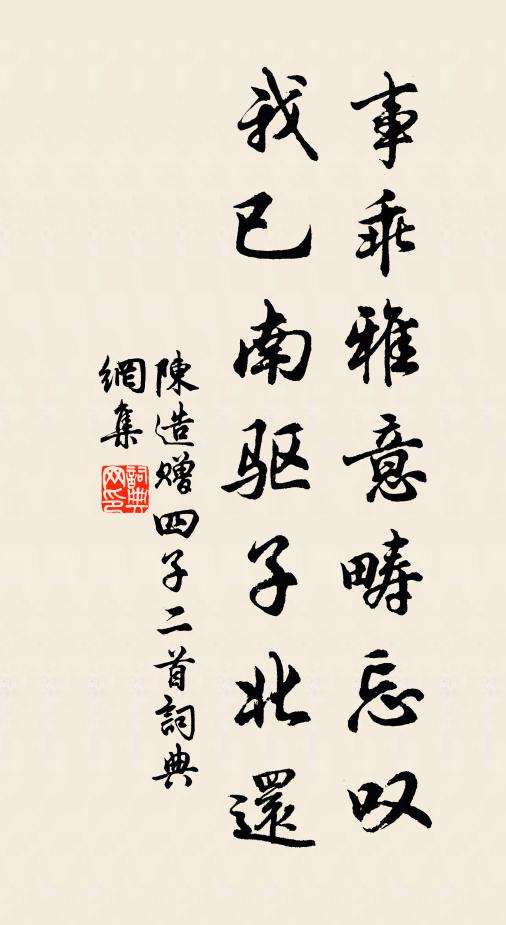 事乖雅意畴忘叹
我已南驱子北還
陳造赠四子二首詞典
網集
詞典网印